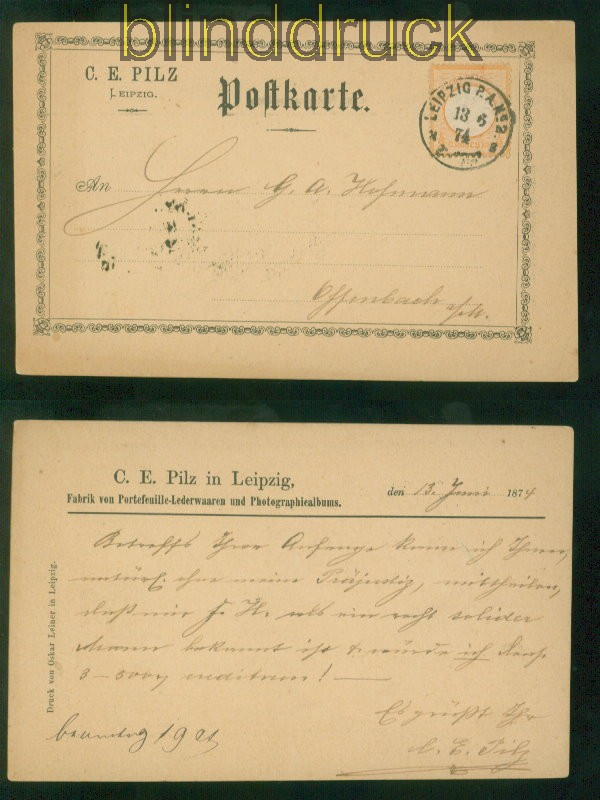 blinddruck
C. E. PILZ
LEIPZIG.
Postkarte.
LEIPZIG P.A. No 2.
13 6
74
An Herrn G. A. Hofmann
Offenbach a/M.
C. E. Pilz in Leipzig,
Fabrik von Portefeuille-Lederwaaren und Photographiealbums.
den 13. Juni 1874
Betreffs Ihrer Anfrage kann ich Ihnen,
natürl. ohne meine Präjudiz, mittheilen,
daß mir F. H. als ein recht solider
Mann bekannt ist & würde ich
creditiren! —
Es grüßt Ihr
C. E. Pilz
Druck von Oskar Leiner in Leipzig.